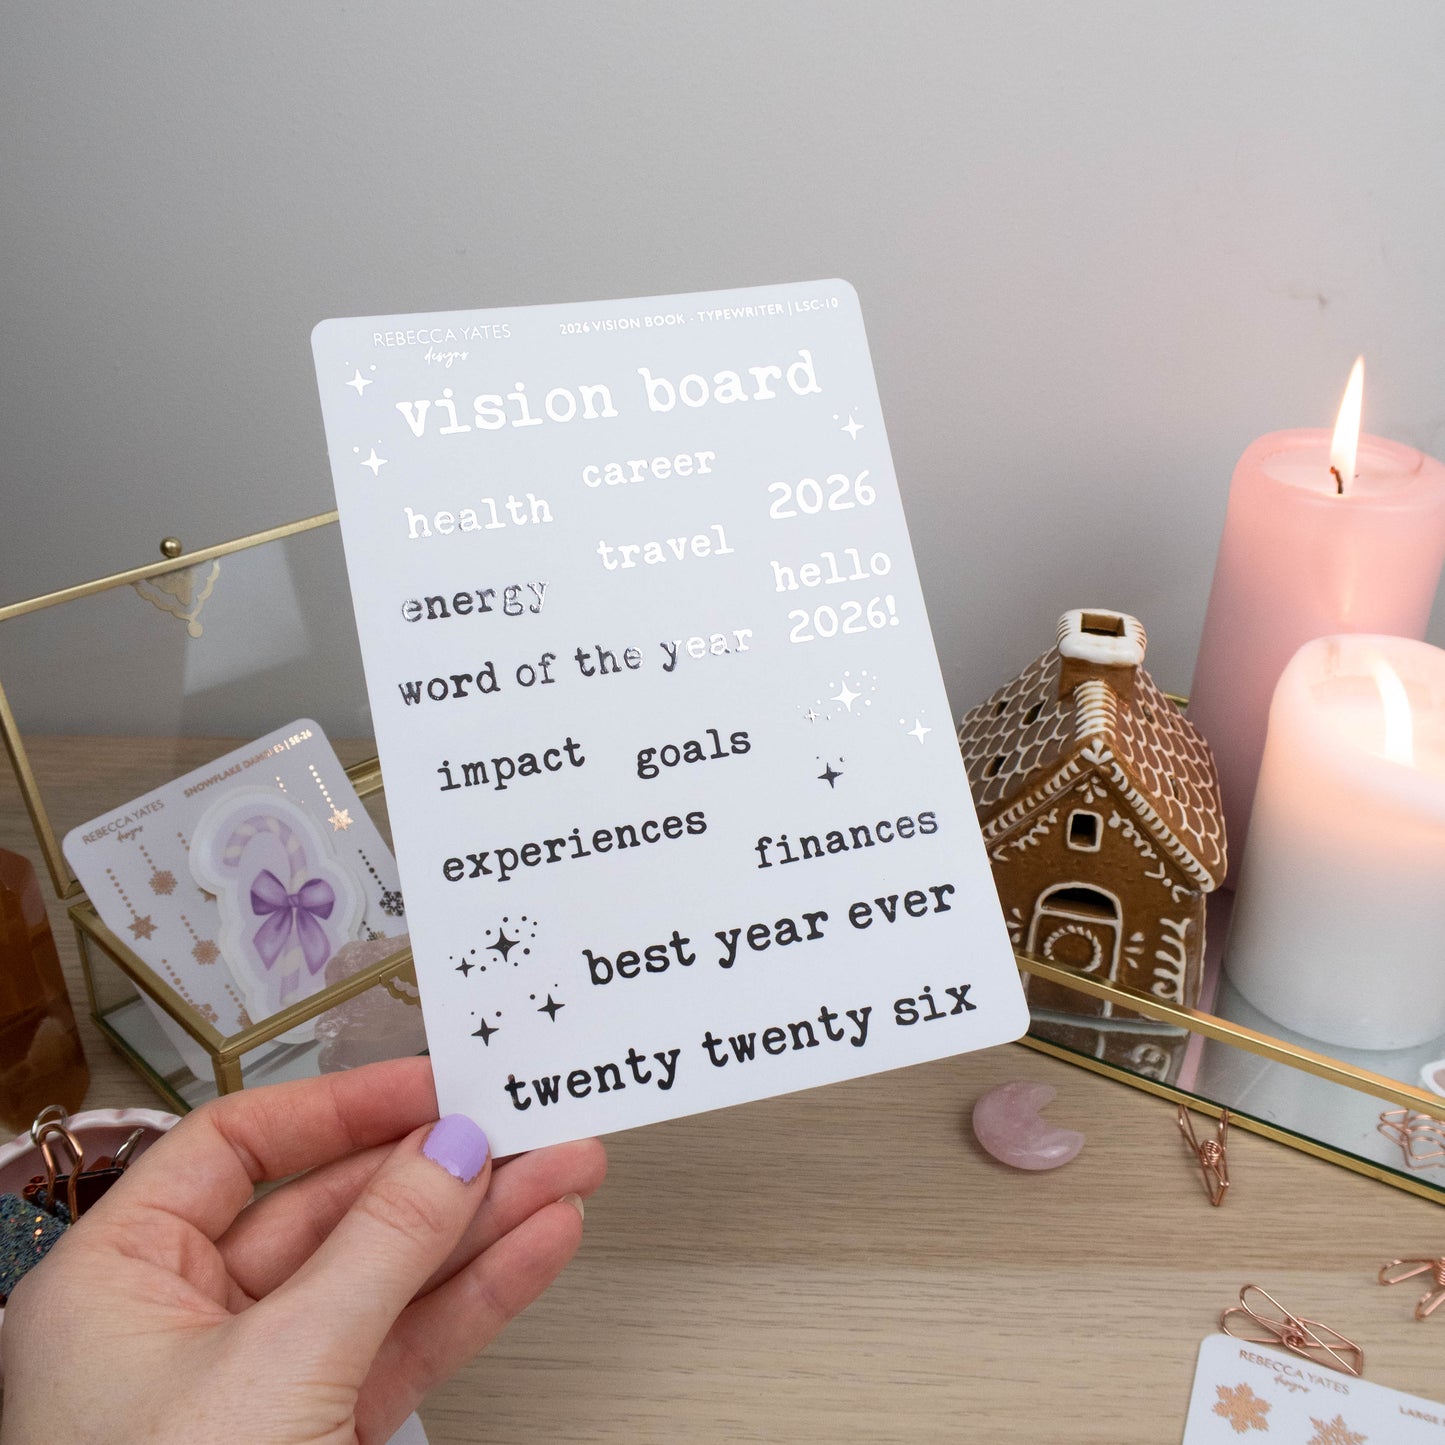 REBECCA YATES
designs
2026 VISION BOOK - TYPEWRITER | LSC-10
vision board
career
health
2026
travel
hello
2026!
energy
word of the year
impact
goals
experiences
finances
best year ever
twenty twenty six
REBECCA YATES
designs
SNOWFLAKE DANGLES | SE-26
REBECCA YATES
designs
LARGE